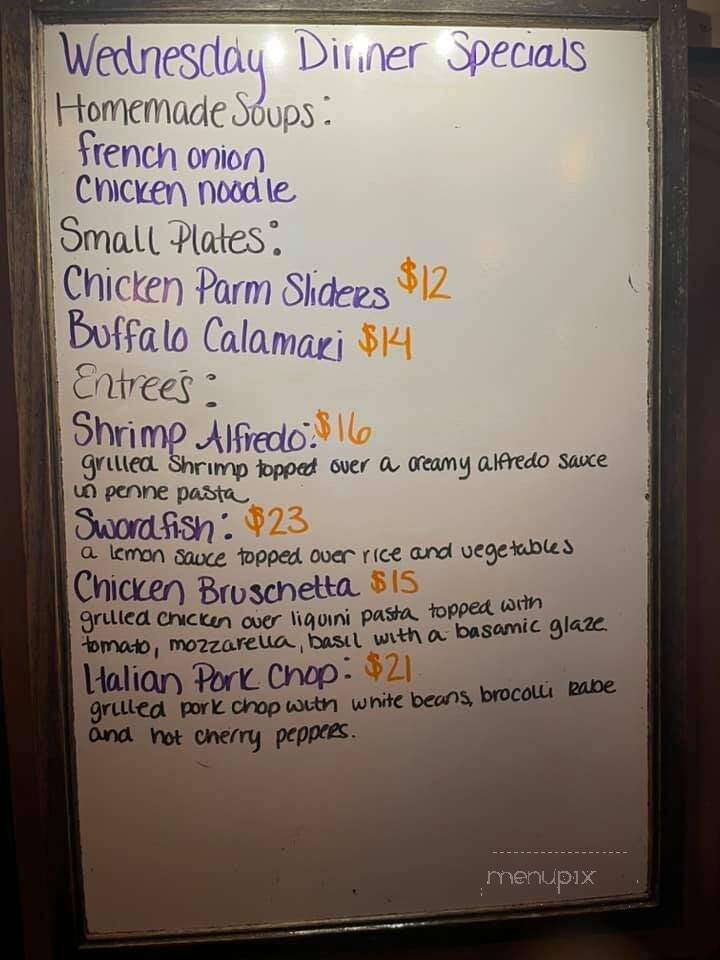 Wednesday Dinner Specials
Homemade Soups:
french onion
Chicken noodle
Small Plates:
Chicken Parm Sliders $12
Buffalo Calamari $14
Entrees:
Shrimp Alfredo: $16
grilled shrimp topped over a creamy alfredo sauce
in penne pasta
Swordfish: $23
a lemon sauce topped over rice and vegetables
Chicken Bruschetta $15
grilled chicken over liquini pasta topped with
tomato, mozzarella, basil with a basamic glaze
Italian Pork Chop: $21
grilled pork chop with white beans, brocolli rabe
and hot cherry peppers.
menupix